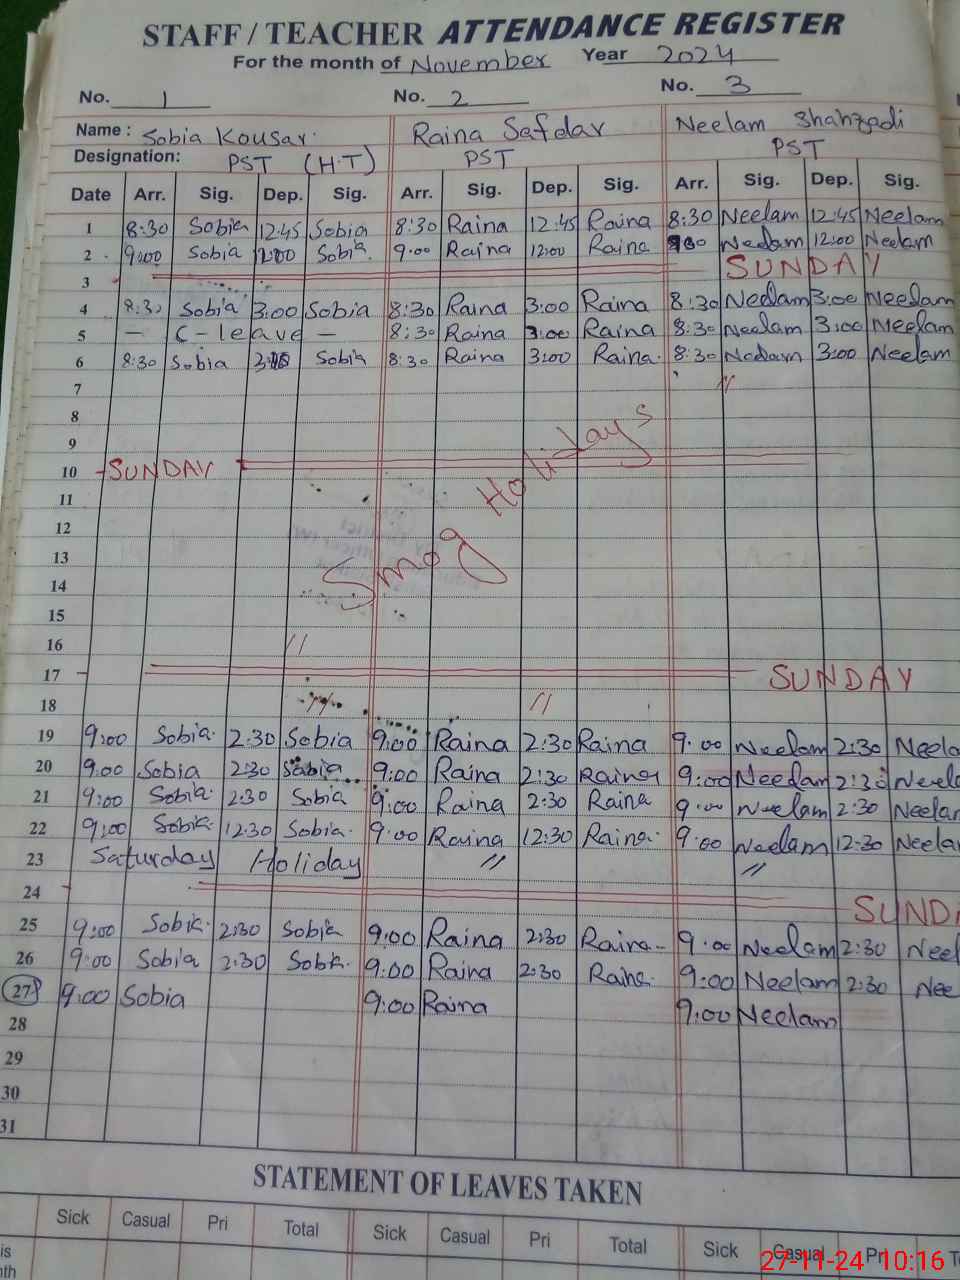 STAFF / TEACHER ATTENDANCE REGISTER
For the month of November Year 2024
No. 1 No. 2 No. 3
Name : Sobia Kousar. Raina Safdar Neelam Shahzadi
Designation: PST (H.T) PST PST
Date Arr. Sig. Dep. Sig. Arr. Sig. Dep. Sig. Arr. Sig. Dep. Sig.
1 8:30 Sobia 12:45 Sobia 8:30 Raina 12:45 Raina 8:30 Neelam 12:45 Neelam
2 9:00 Sobia 12:00 Sobia 9:00 Raina 12:00 Raina Neelam 12:00 Neelam
3 SUNDAY
4 8:30 Sobia 3:00 Sobia 8:30 Raina 3:00 Raina 8:30 Neelam 3:00 Neelam
5 — C-leave — 8:30 Raina 3:00 Raina 8:30 Neelam 3:00 Neelam
6 8:30 Sobia Sobia 8:30 Raina 3:00 Raina 8:30 Neelam 3:00 Neelam
7 "
8
9
10 SUNDAY
11
12
13
14
Smog Holidays
15
16 "
17 SUNDAY
18 " "
19 9:00 Sobia 2:30 Sobia 9:00 Raina 2:30 Raina 9:00 Neelam 2:30 Neela
20 9:00 Sobia 2:30 Sobia 9:00 Raina 2:30 Raina 9:00 Neelam 2:30 Neela
21 9:00 Sobia 2:30 Sobia 9:00 Raina 2:30 Raina 9:00 Neelam 2:30 Neelam
22 9:00 Sobia 12:30 Sobia 9:00 Raina 12:30 Raina 9:00 Neelam 12:30 Neelam
23 Saturday Holiday " "
24 SUND
25 9:00 Sobia 2:30 Sobia 9:00 Raina 2:30 Raina 9:00 Neelam 2:30 Neel
26 9:00 Sobia 2:30 Sobia 9:00 Raina 2:30 Raina 9:00 Neelam 2:30 Nee
27 9:00 Sobia 9:00 Raina 9:00 Neelam
28
29
30
31
STATEMENT OF LEAVES TAKEN
Sick Casual Pri Total Sick Casual Pri Total Sick Casual Pri
27-11-24 10:16